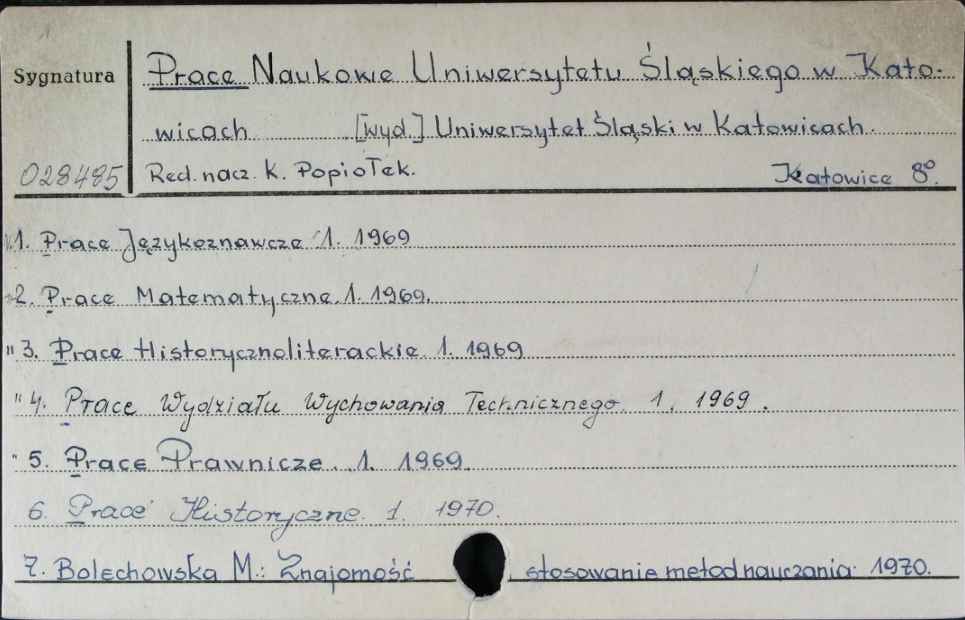 Sygnatura
Prace Naukowe Uniwersytetu Śląskiego w Kato-
wicach [wyd.] Uniwersytet Śląski w Katowicach.
028485 Red. nacz. K. Popiołek. Katowice 8°.
1. Prace Językoznawcze 1. 1969
2. Prace Matematyczne. 1. 1969.
" 3. Prace Historycznoliterackie 1. 1969
" 4. Prace Wydziału Wychowania Technicznego. 1. 1969.
" 5. Prace Prawnicze. 1. 1969.
6. Prace Historyczne. 1. 1970.
7. Bolechowska M.: Znajomość , stosowanie metod nauczania. 1970.